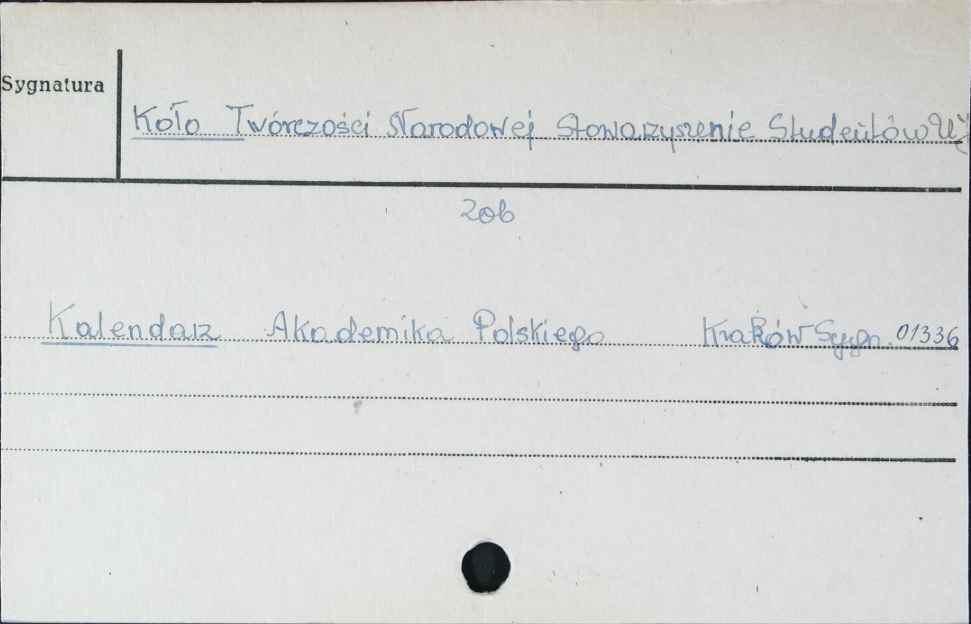 Sygnatura
Koło Twórczości Narodowej Stowarzyszenie Studentów UJ
Zob
Kalendarz Akademika Polskiego Kraków Sygn. 01336